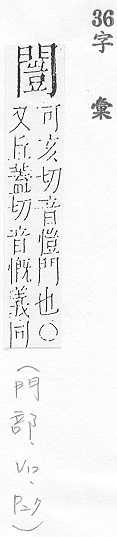 36字彙
闓
可亥切音愷門也○
又丘蓋切音慨義同
(門部、V12、P27)